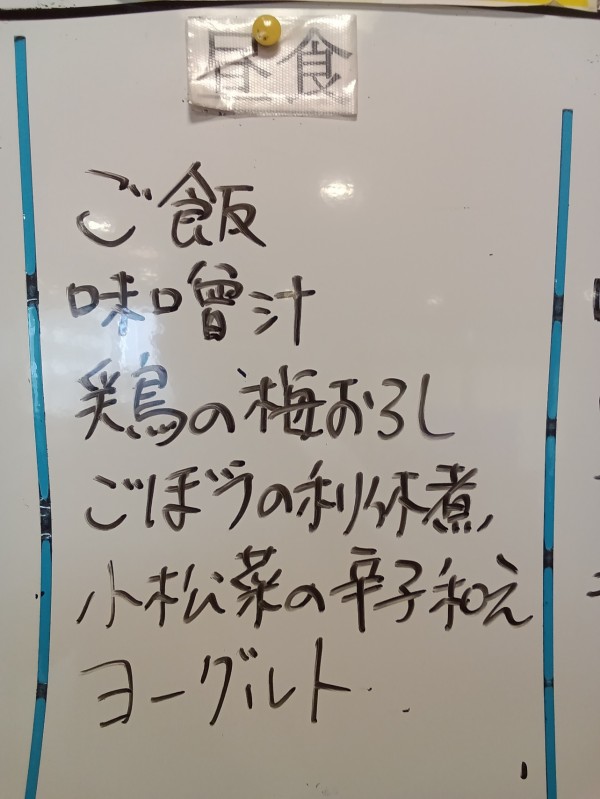 昼食
ご飯
味噌汁
鶏の梅おろし
ごぼうの利休煮
小松菜の辛子和え
ヨーグルト